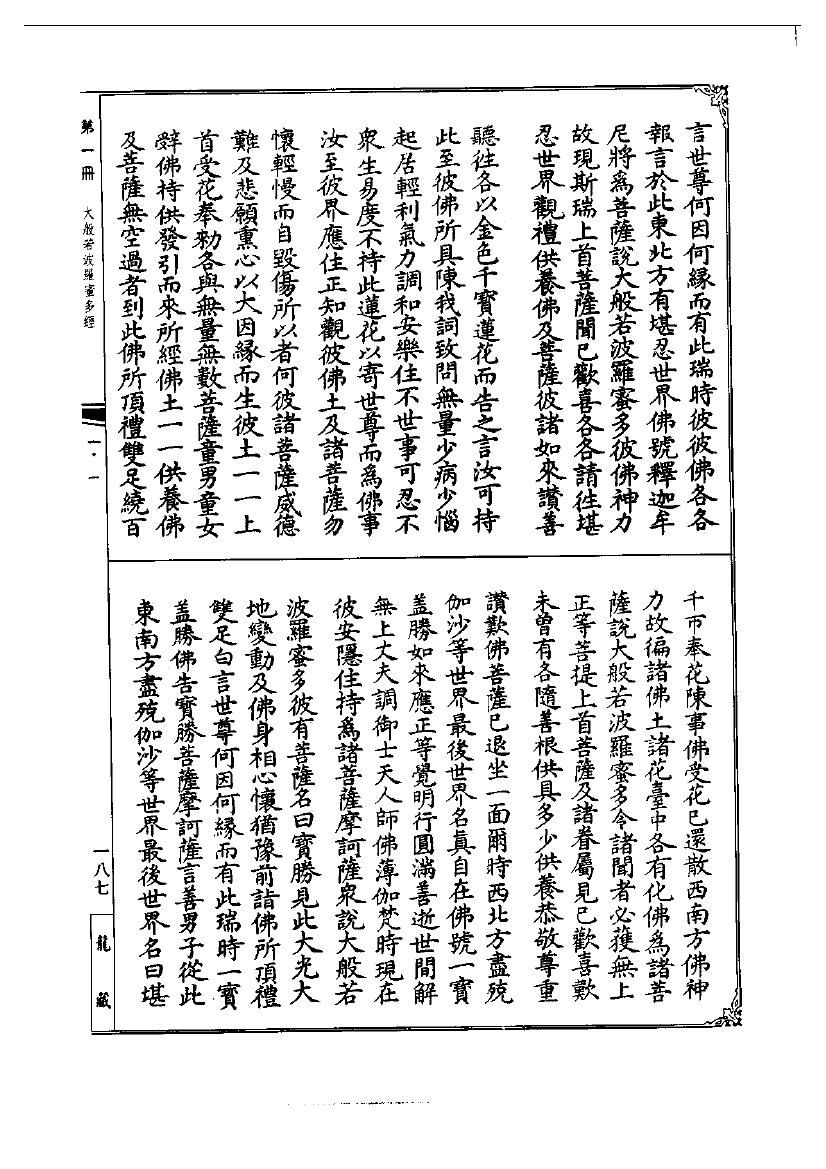 言世尊何因何緣而有此瑞時彼彼佛各各
報言於此東北方有堪忍世界佛號釋迦牟
尼將為菩薩說大般若波羅蜜多彼佛神力
故現斯瑞上首菩薩聞已歡喜各各請往堪
忍世界觀禮供養佛及菩薩彼諸如來讚善
聽往各以金色千寶蓮花而告之言汝可持
此至彼佛所具陳我詞致問無量少病少惱
起居輕利氣力調和安樂住不世事可忍不
眾生易度不持此蓮花以寄世尊而為佛事
汝至彼界應住正知觀彼佛土及諸菩薩勿
懷輕慢而自毀傷所以者何彼諸菩薩威德
難及悲願熏心以大因緣而生彼土一一上
首受花奉勑各與無量無數菩薩童男童女
辝佛持供發引而來所經佛土一一供養佛
及菩薩無空過者到此佛所頂禮雙足繞百
千帀奉花陳事佛受花已還散西南方佛神
力故徧諸佛土諸花臺中各有化佛為諸菩
薩說大般若波羅蜜多令諸聞者必獲無上
正等菩提上首菩薩及諸眷屬見已歡喜歎
未曾有各隨善根供具多少供養恭敬尊重
讚歎佛菩薩已退坐一面爾時西北方盡殑
伽沙等世界最後世界名真自在佛號一寶
蓋勝如來應正等覺明行圓滿善逝世間解
無上丈夫調御士天人師佛薄伽梵時現在
彼安隱住持為諸菩薩摩訶薩眾說大般若
波羅蜜多彼有菩薩名曰寶勝見此大光大
地變動及佛身相心懷猶豫前詣佛所頂禮
雙足白言世尊何因何緣而有此瑞時一寶
蓋勝佛告寶勝菩薩摩訶薩言善男子從此
東南方盡殑伽沙等世界最後世界名曰堪
第一冊 大般若波羅蜜多經
一·一
一八七
龍藏